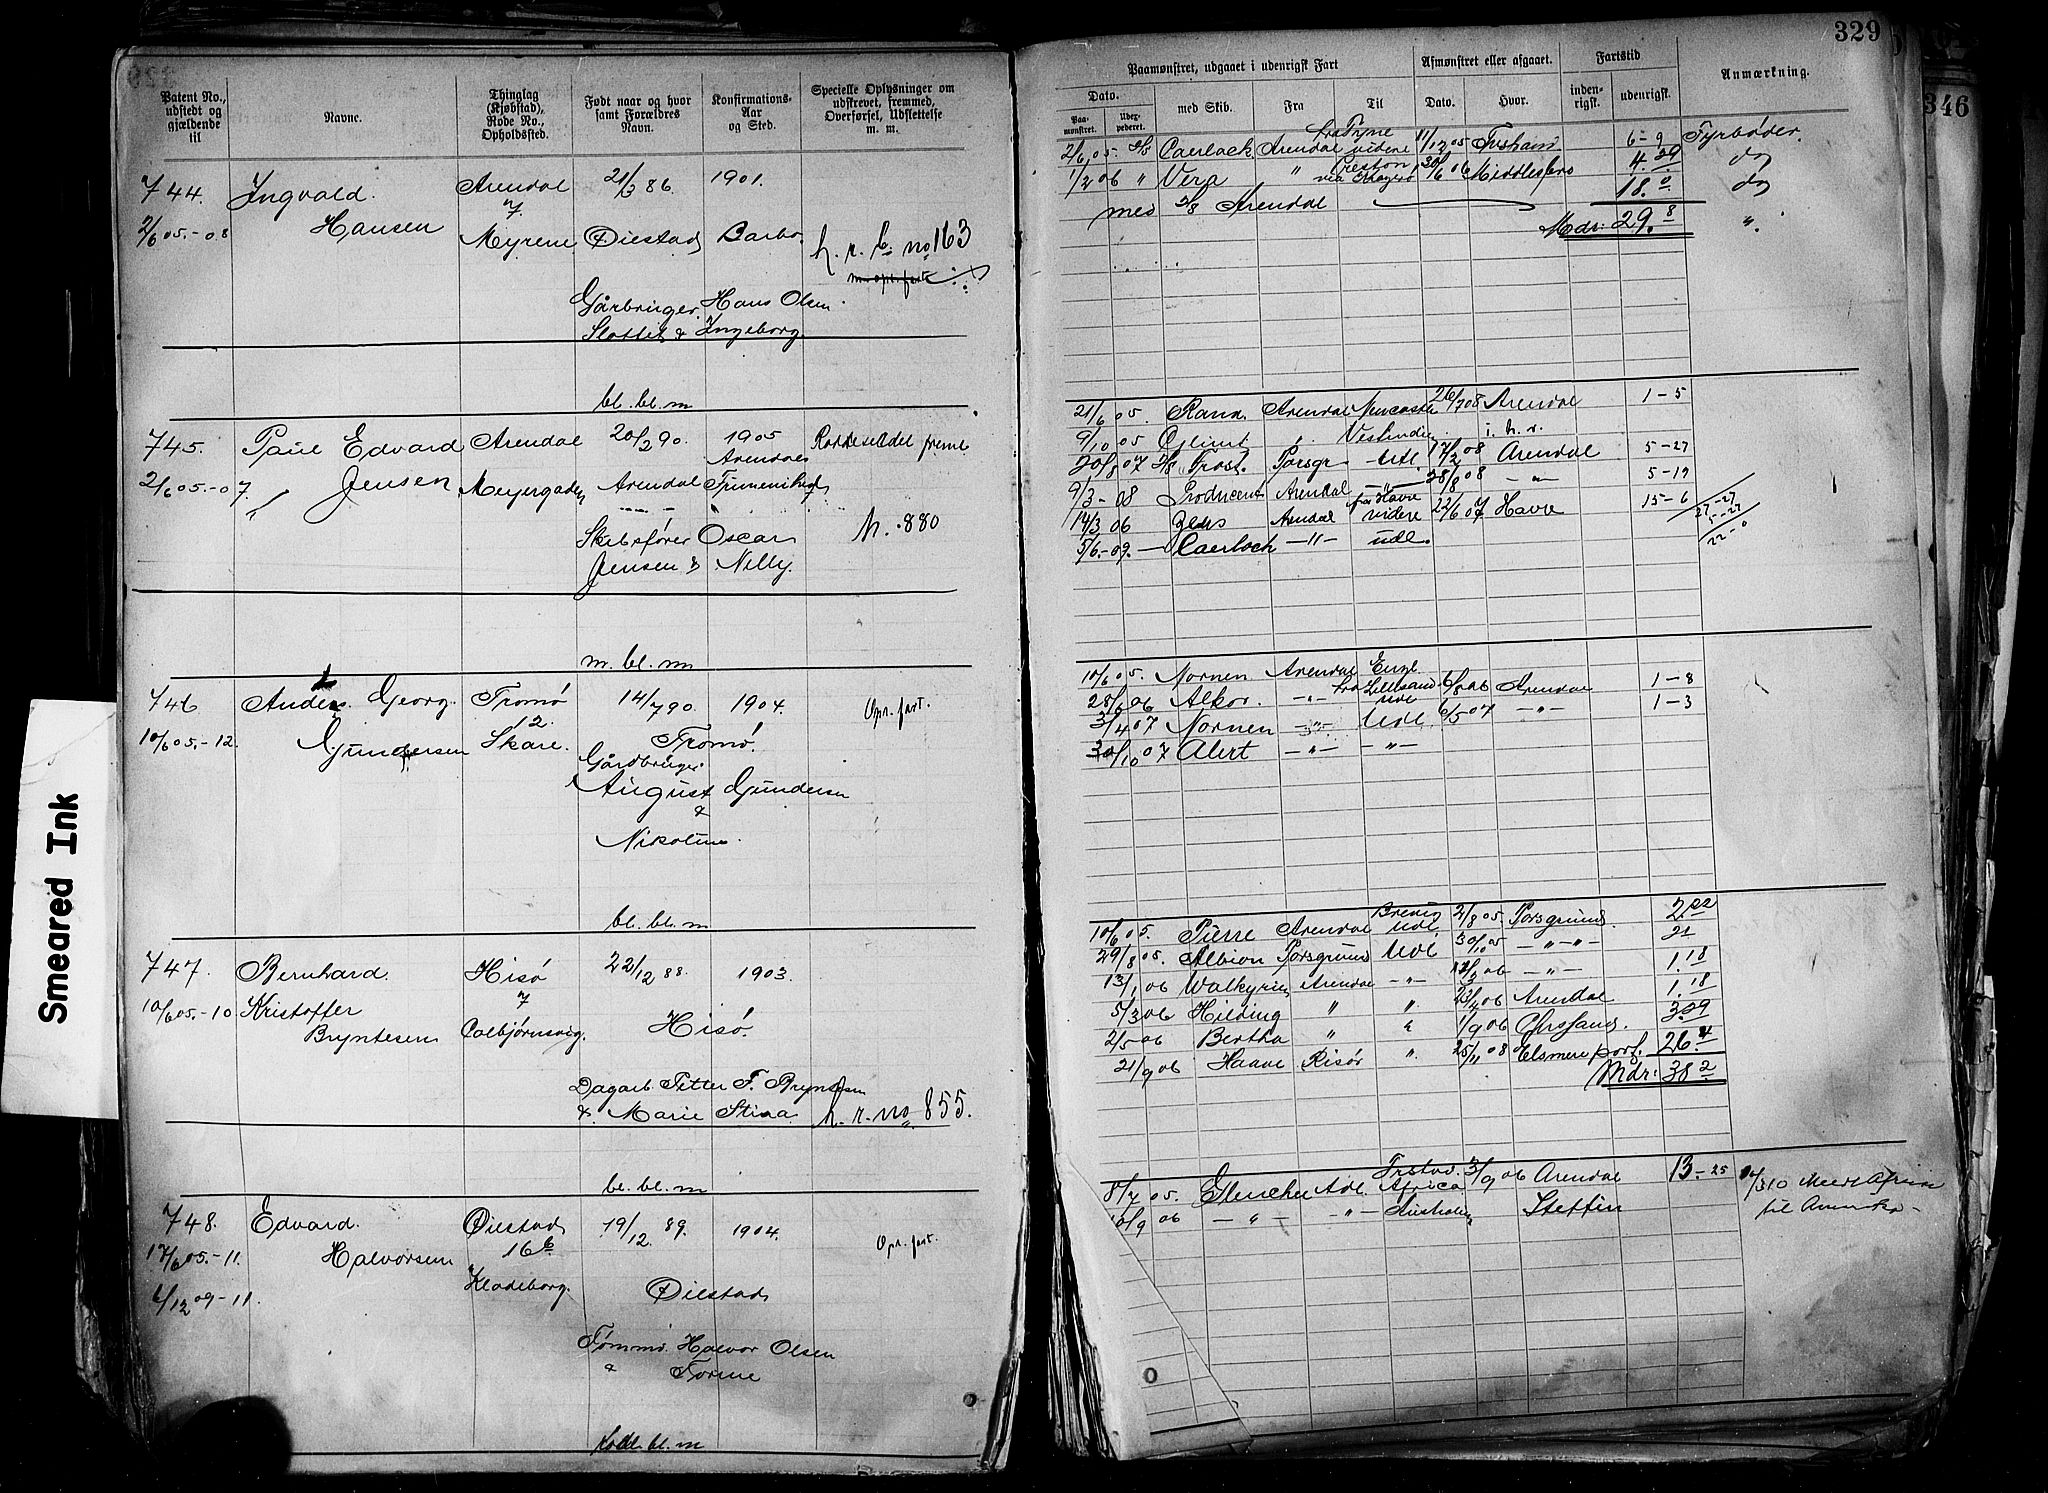 329
346
Patent No., udstedt og gjældende til
Navne.
Thinglag (Kjøbstad), Rode No., Opholdssted.
Født naar og hvor samt Forældres Navn.
Konfirmations- Aar og Sted.
Specielle Oplysninger om udskrevet, fremmed, Overførsel, Udslettelse m. m.
Paamønstret, udgaaet i udenrigsk Fart
Afmønstret eller afgaaet.
Fartstid
Anmærkning.
Dato.
Paamønstret.
med Skib.
Fra
Til
Dato.
Hvor.
indenrigsk.
udenrigsk.
744. Ingvald Arendal 21/2 86. 1901.
2/6 05.-08 Hansen 7. Myrene Øiestad Barbo.
h. r. b. no 163
Gårbruger Hans Olsen
Slottet & Ingeborg.
bl. bl. m
2/6 05. Caerlock Arendal videre 11/12 05 6-9 Fyrbøder
1/2 06 " Vera " 30/6 06 Middlesbro 4.29
med Arendal 18.0
Mdr: 29.8 "
745. Paul Edvard Arendal 20/2 90. 1905
2/6 05.-07. Jensen Arendal
Skibsfører Oscar
Jensen & Nelly.
h. 880
m. bl. m
21/6 05. Rand Arendal Newcastle 26/7 08 Arendal 1-5
9/10 05 " Vestindien
20/8 07 Frost. Porsgr Udl. 17/2 08 Arendal 5-27
9/3-08 Producent Arendal -"- 28/8 08 -"- 5-19
14/3 06 Arendal videre Havre 15-6
5/6-09.- Caerloch -"- udl.
27-27
5-27
22-0
746 Georg Tromø 14/7 90. 1904. Opr. fart.
10/6 05.-12. Gundersen 12. Skare.
Tromø.
Gårdbruger
August Gundersen
&
Nikoline.
bl. bl. m
10/6 05. Nornen Arendal Engl.
28/6 06 Alkor. -"- fra Lillesand 6/8 06 Arendal 1-8
3/4 07 Nornen -"- Udl 6/5 07 -"- 1-3
30/10 07 Alert -"- -"-
747. Bernhard Hisø 22/12 88. 1903.
10/6 05.-10 Kristoffer 7
Bryntesen Colbjørnsvig. Hisø.
Dagarb. Petter F. Bryntesen
& Marie Stina h. r. no 855.
bl. bl. m
10/6 05. Pierre Arendal Brevig Udl. 2/8 05. Porsgrund. 2.22
29/8 05. Albion Porsgrund Udl 30/10 05 -"-"- 21
13/1 06 Walkyrien Arendal -"- -"- 1.18
5/3 06 Hilding " " 23/4 06 Arendal 1.18
2/5 06 Bertha " " 1/9 06 Chrssand. 3.29
21/9 06 Haave Risør " 25/11 08 Elsmere port. 26.4
Mdr: 38.2
748. Edvard Øiestad 19/12. 89. 1904. Opr. fart.
17/6 05.-11. Halvorsen 16b
6/12 09-11. Klodeborg. Øiestad
Tømmr. Halvor Olsen
&
Torine
bl. m
8/7 05. Adl. Africa 3/9 06 Arendal 13-25
10/9 06 -"- -"- Australien Stettin
til Amerika-
Smeared Ink